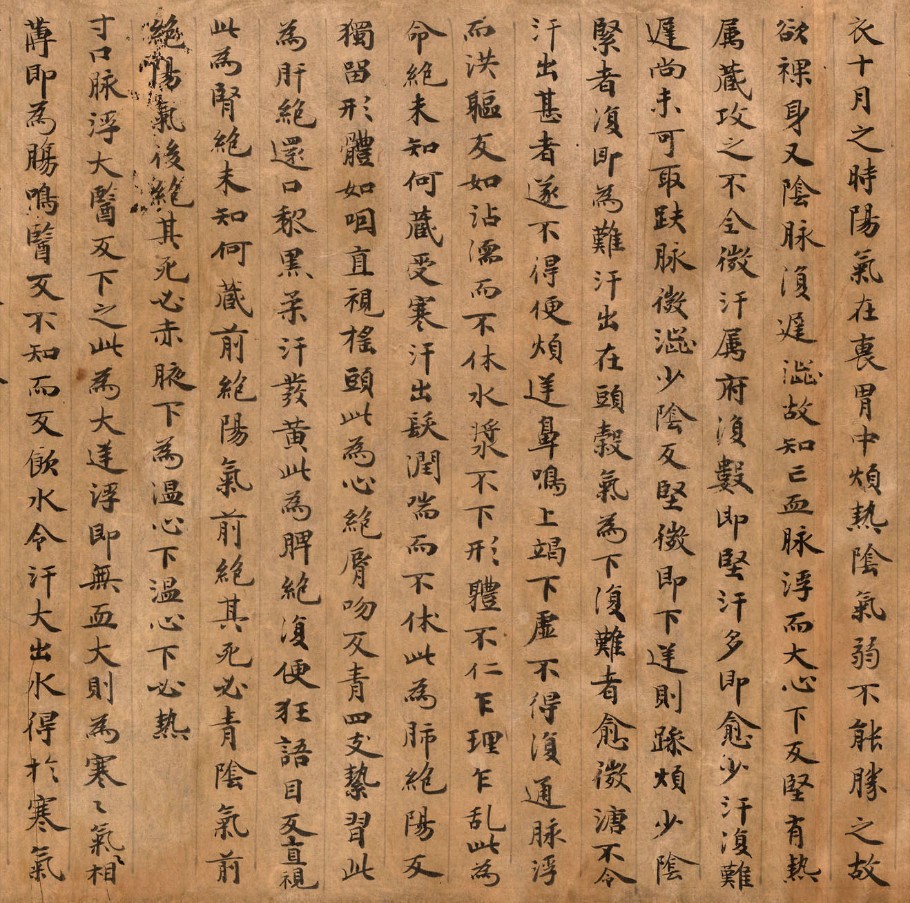 衣十月之時陽氣在裏胃中煩熱陰氣弱不能勝之故
欲裸身又陰脉復遲澁故知亡血脉浮而大心下反堅有熱
属蔵攻之不全微汗属府復數即堅汗多即愈少汗復難
遲尚未可取趺脉微澁少陰反堅微即下逆則躁煩少陰
緊者復即為難汗出在頭穀氣為下復難者愈微溏不令
汗出甚者遂不得便煩逆鼻鳴上竭下虛不得復通脉浮
而洪軀反如沾濡而不休水漿不下形體不仁乍理乍乱此為
命絶未知何蔵受寒汗出髮潤喘而不休此為肺絶陽反
獨留形體如咽直視摇頭此為心絶脣吻反青四支縶習此
為肝絶還口黎黒柔汗發黄此為脾絶復便狂語目反直視
此為腎絶未知何蔵前絶陽氣前絶其死必青陰氣前
絶陽氣後絶其死必赤腋下為温心下温心下必熱
寸口脉浮大醫反下之此為大逆浮即無血大則為寒〻氣相
薄即為腸鳴醫反不知而反飲水令汗大出水得於寒氣